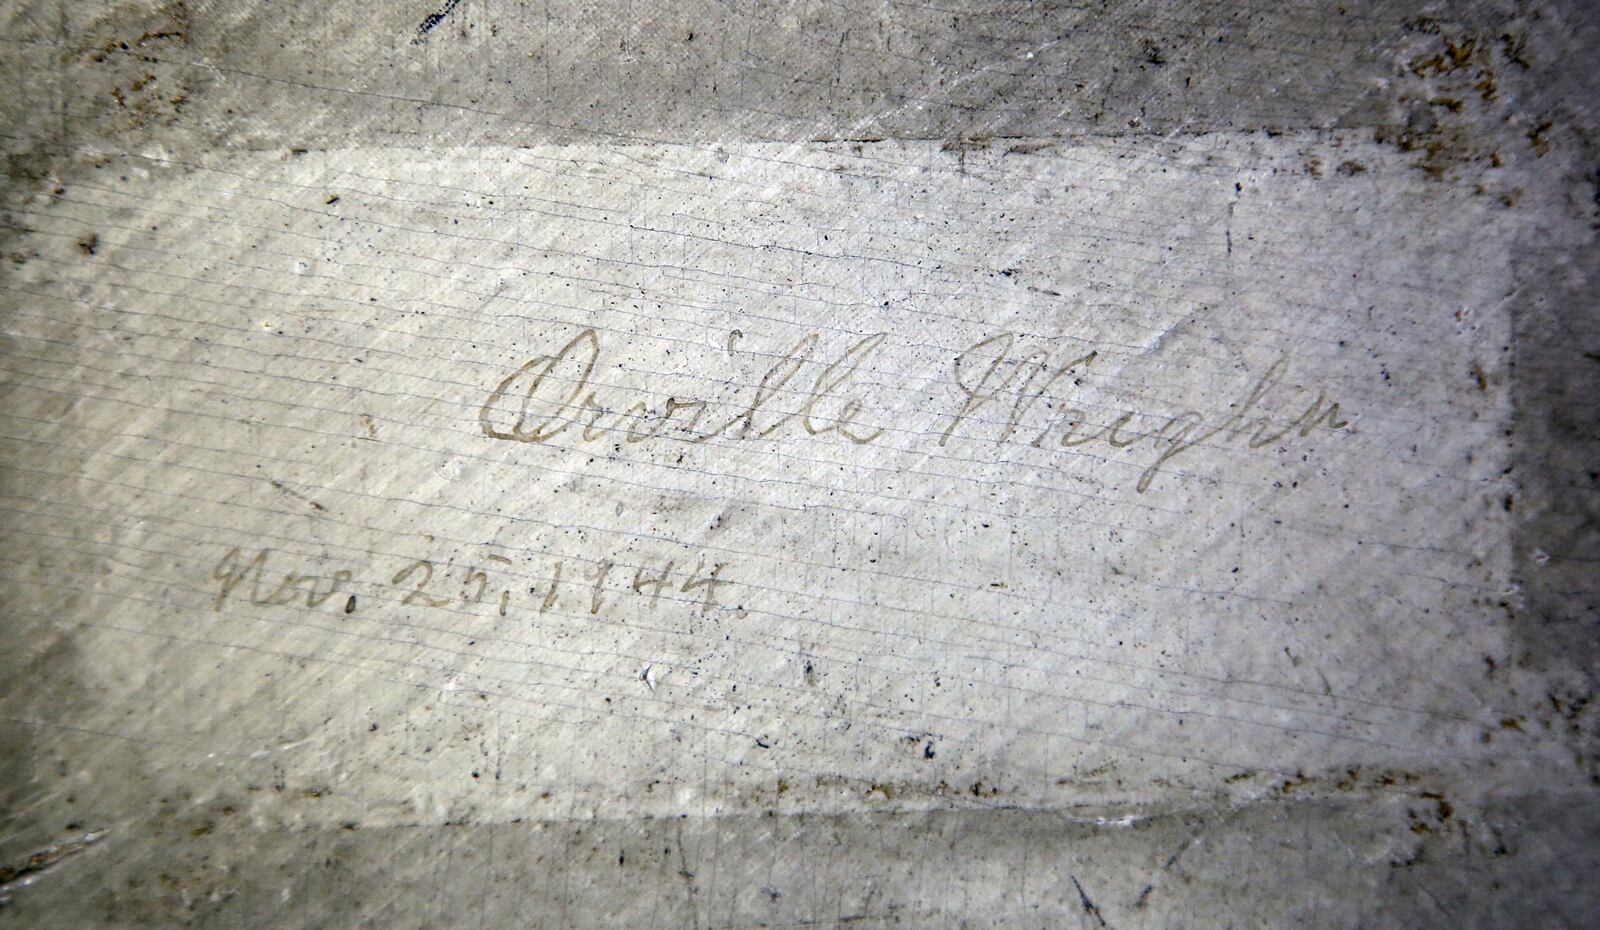 Orville Wright
Nov. 25, 1944.